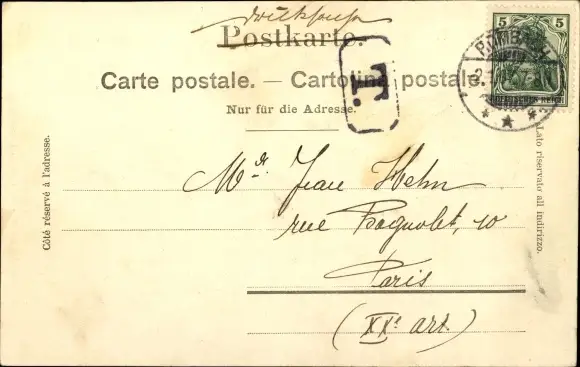 Drucksache
Postkarte.
Carte postale. — Cartolina postale.
Nur für die Adresse.
T.
5 5
DEUTSCHES REICH
Côté réservé à l'adresse.
Lato riservato all indirizzo.
Mr. Jean Hehn
rue Bagnolet, 10
Paris
(XXe arr.)